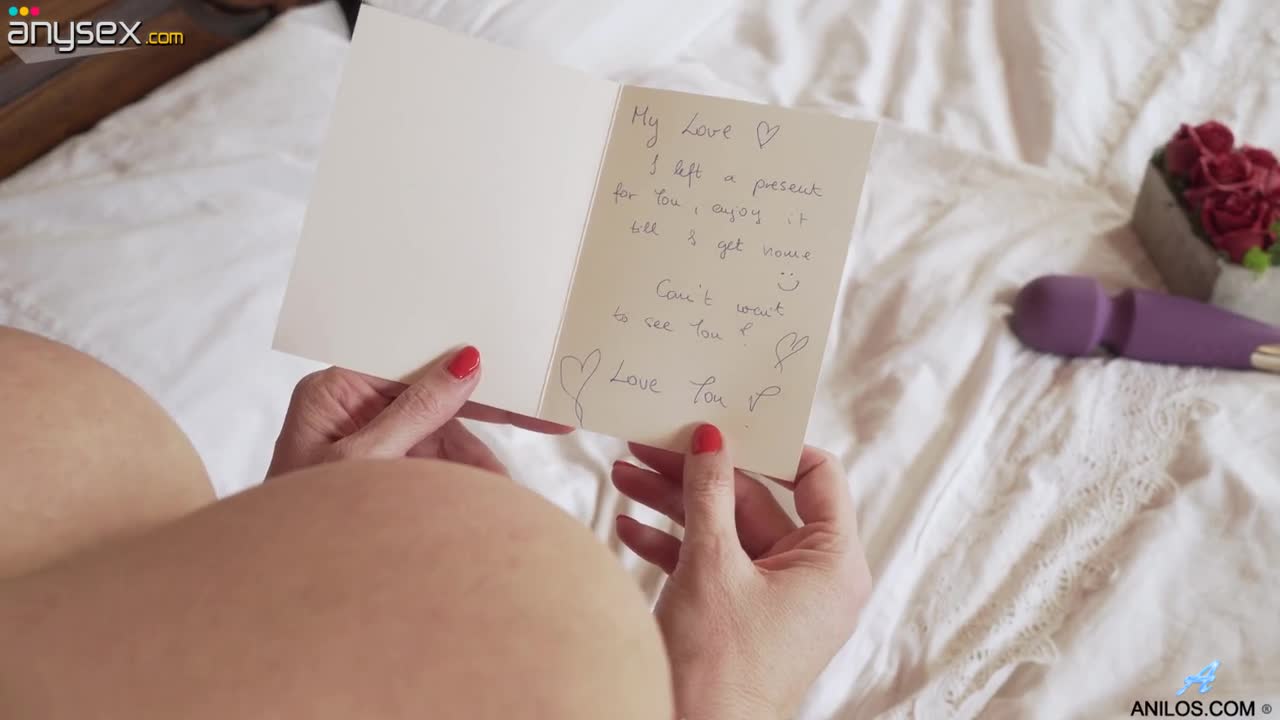 anysex.com
My Love ♡
I left a present
for You, enjoy it
till I get home
☺
Can't wait
to see You!
♡ Love You ♡
ANILOS.COM ®